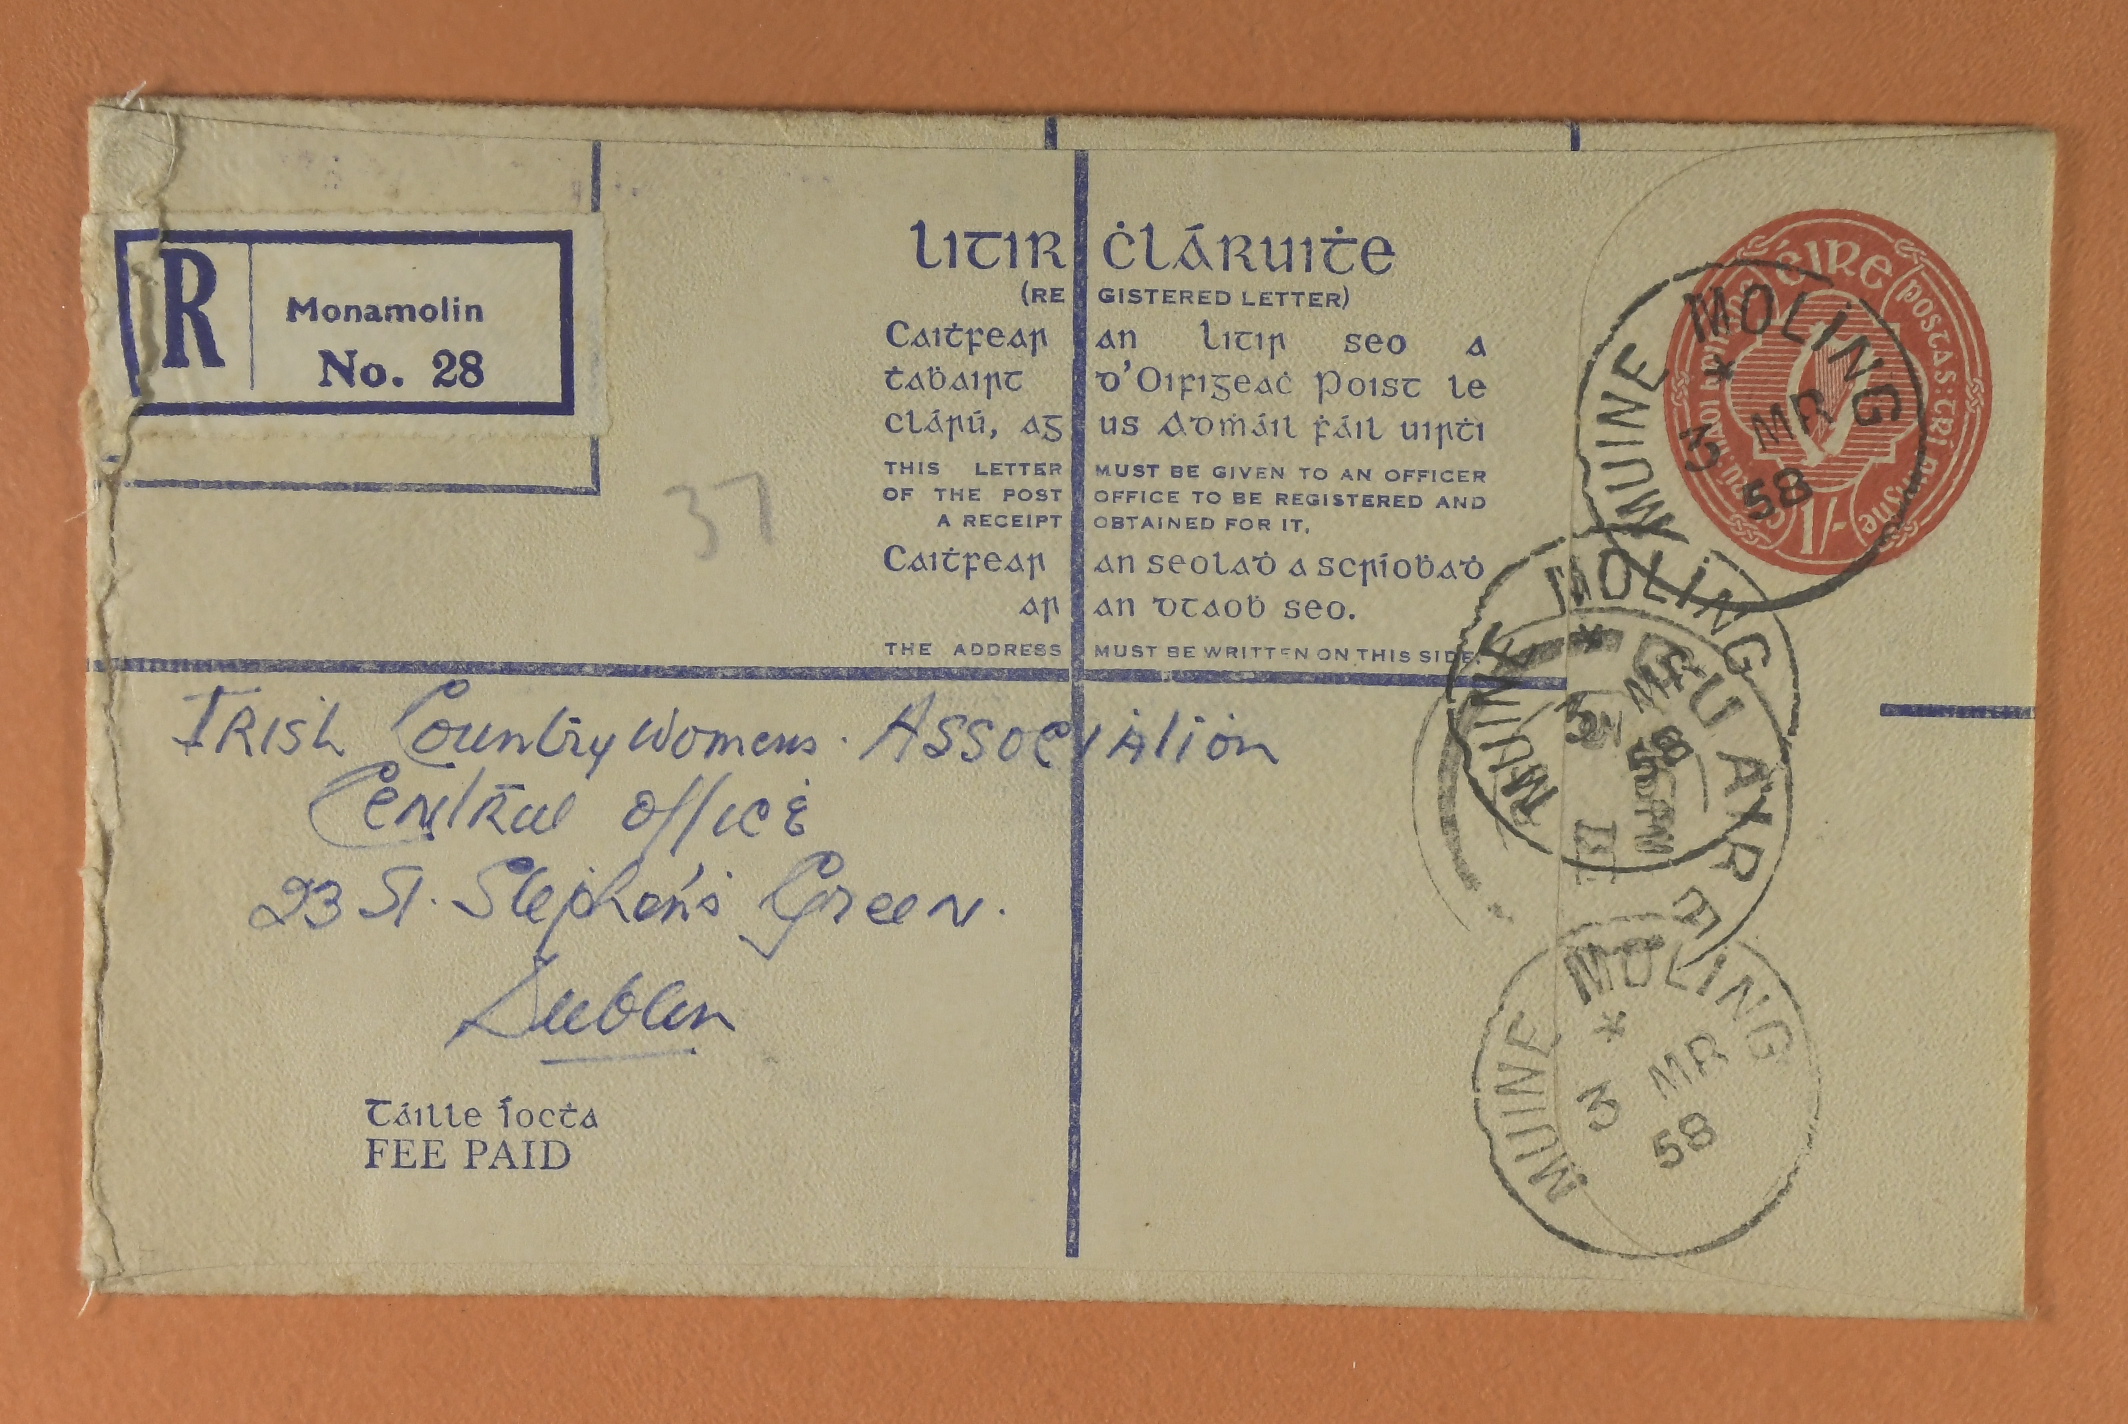 R
Monamolin
No. 28
LITIR ĊLÁRUIṪE
(REGISTERED LETTER)
Caiṫfear an litir seo a
ṫaḃairt d'Oifigeaċ Poist le
clárú, agus Admáil ḟáil uirṫi
THIS LETTER MUST BE GIVEN TO AN OFFICER
OF THE POST OFFICE TO BE REGISTERED AND
A RECEIPT OBTAINED FOR IT.
Caiṫfear an seolaḋ a scríoḃaḋ
ar an dtaoḃ seo.
THE ADDRESS MUST BE WRITTEN ON THIS SIDE.
37
ÉIRE
1/-
MUINE MOLING
* 3 MR 58
MUINE MOLING
* 3 MR 58
MUINE MOLING
* 3 MR 58
Irish Country Womens. Association
Central Office
23 St. Stephen's Green.
Dublin
Táille íocṫa
FEE PAID